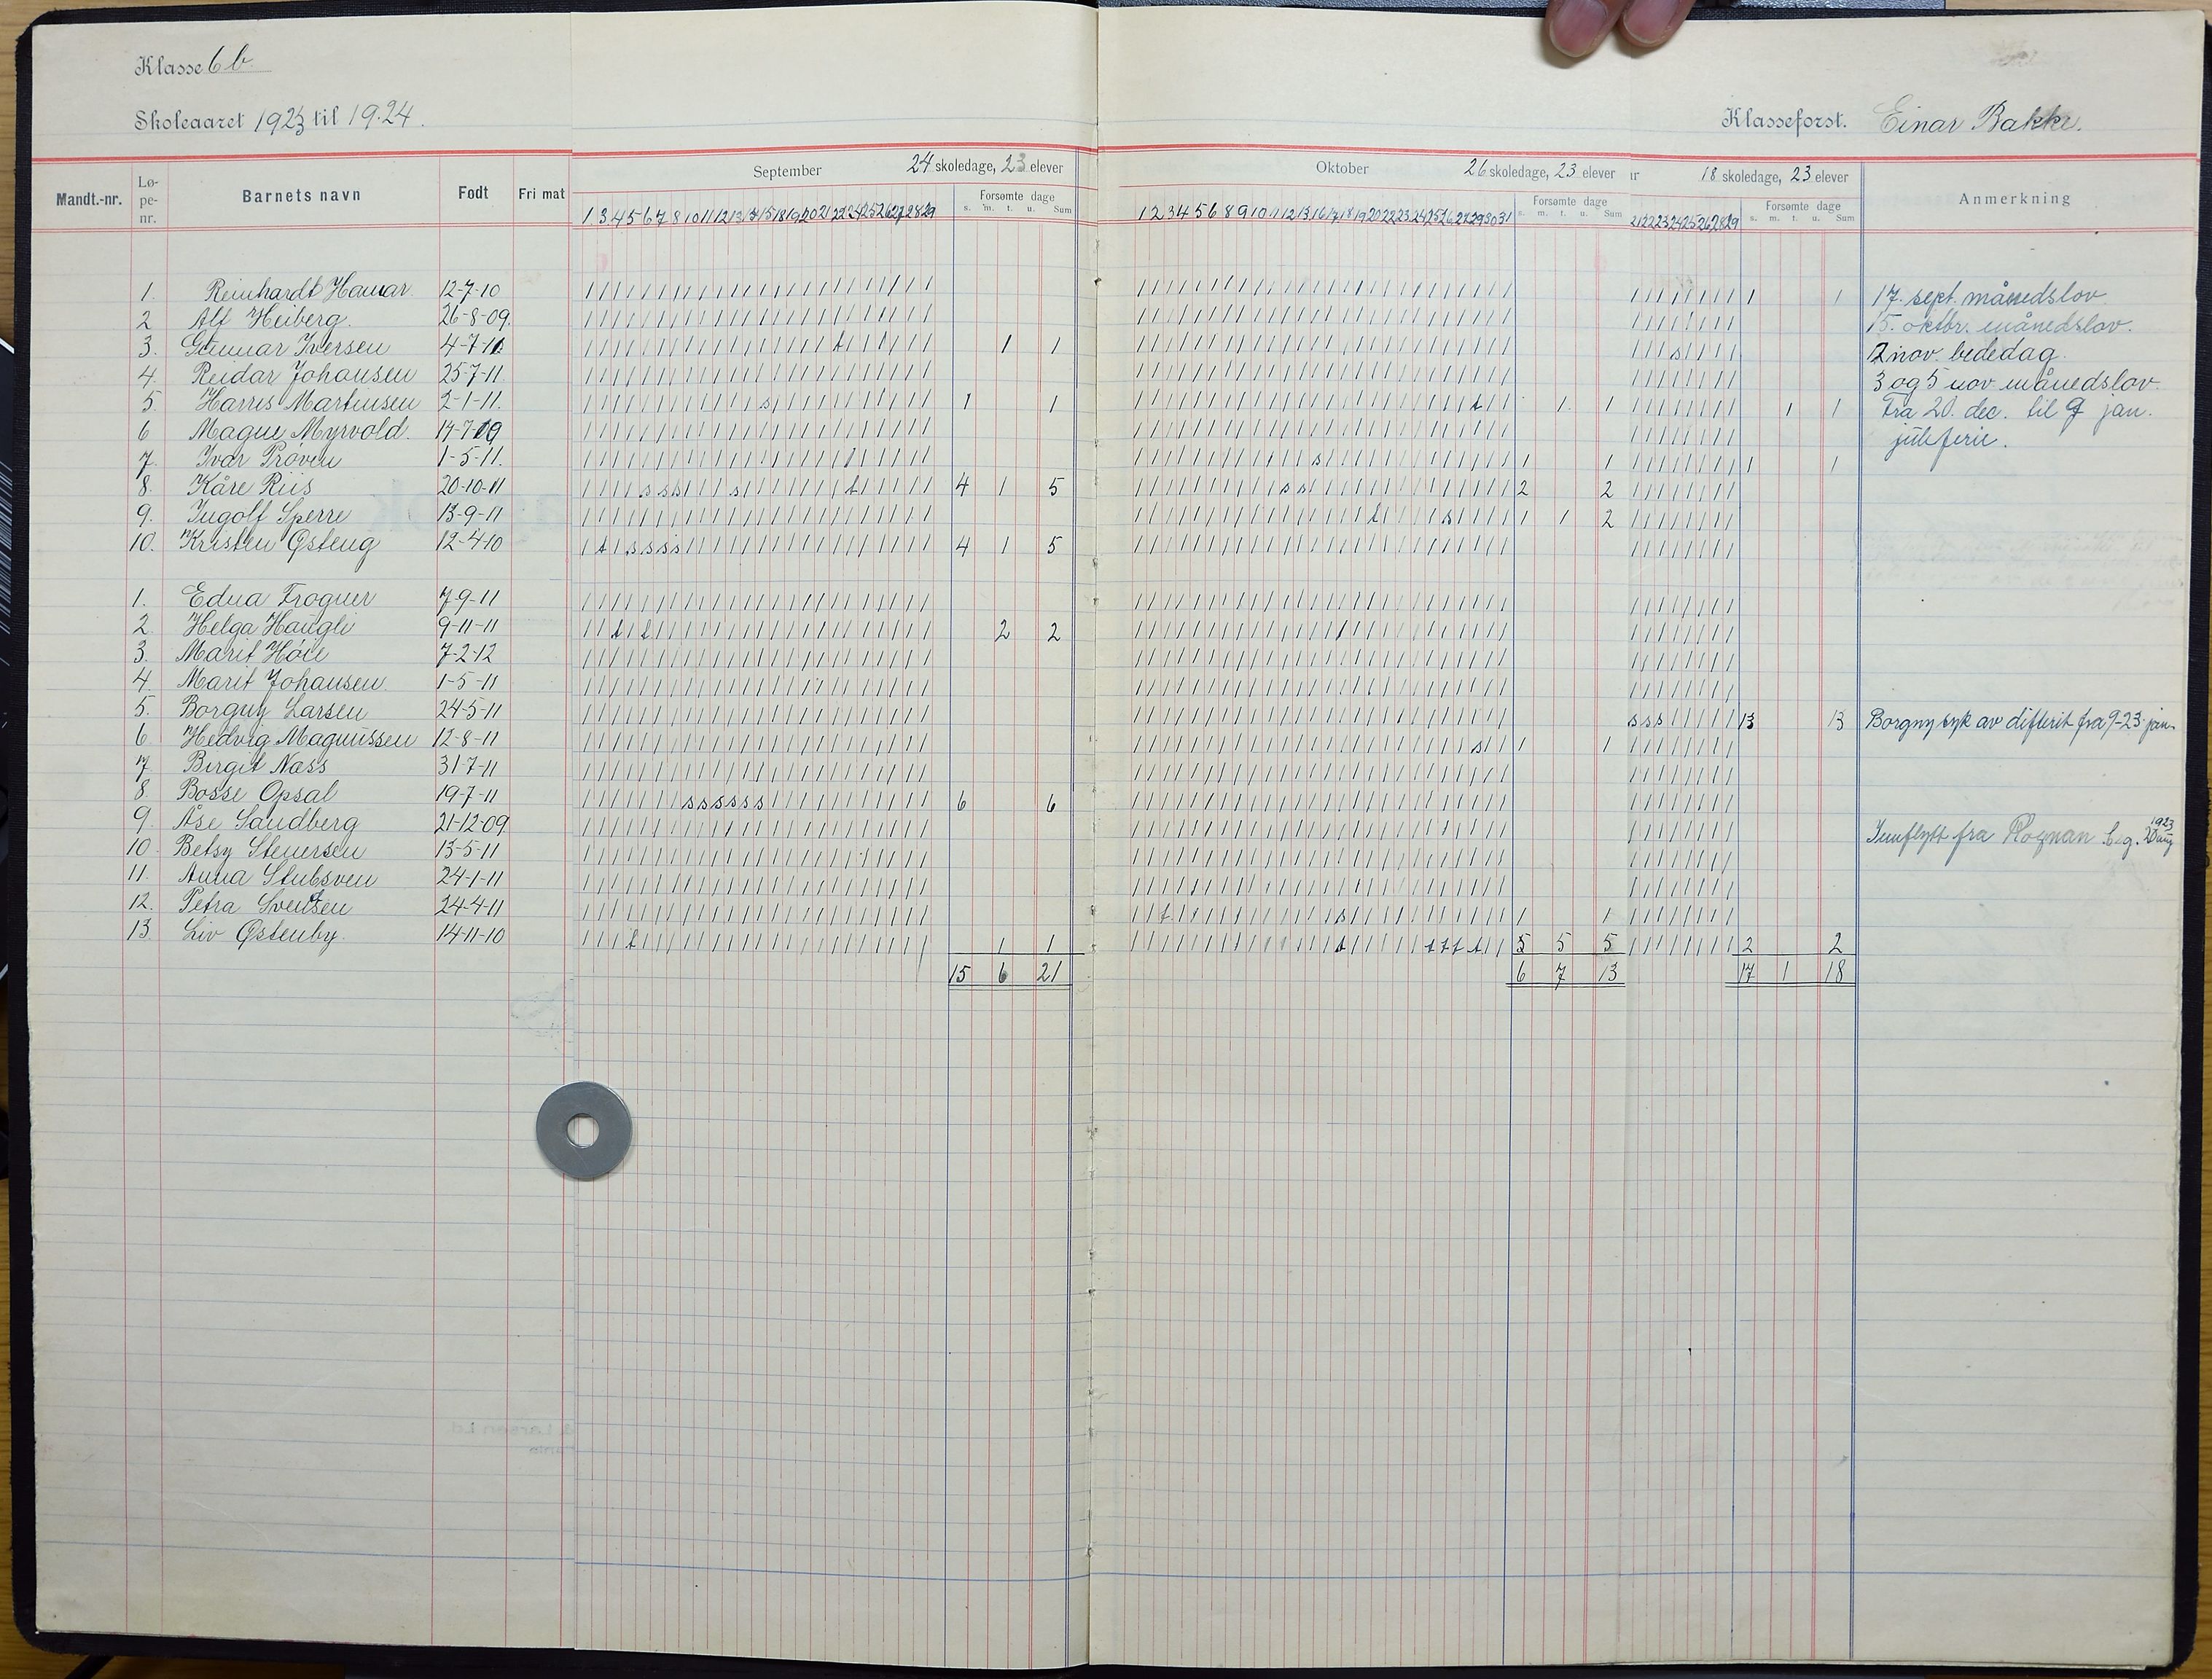 Klasse 6 b.
Skoleaaret 1923 til 19.24.
Klasseforst. Einar Bakke.
Mandt.-nr. Lø-pe-nr. Barnets navn Født Fri mat
September 24 skoledage, 23 elever
Forsømte dage
s. m. t. u. Sum
1 3 4 5 6 7 8 10 11 12 13 14 15 18 19 20 21 22 24 25 26 27 28 29
Oktober 26 skoledage, 23 elever
Forsømte dage
s. m. t. u. Sum
1 2 3 4 5 6 8 9 10 11 12 13 16 17 18 19 20 22 23 24 25 26 27 29 30 31
ar 18 skoledage, 23 elever
Forsømte dage
s. m. t. u. Sum
21 22 23 24 25 26 28 29
Anmerkning
1. Reinhardt Hamar. 12-7-10 1 1 17. sept. månedslov
2 Alf Heiberg. 26-8-09. 15. oktbr. månedslov.
3. Gunnar Iversen 4-7-11 1 1 2 nov. bededag.
4. Reidar Johansen 25-7-11. 3 og 5 nov månedslov.
5. Harris Martinsen 2-1-11. 1 1 1 1 1 1 Fra 20. dec. til 9 jan.
6 Magne Myrvold. 14-7-09 juleferie.
7. Ivar Prøven 1-5-11. 1 1 1 1
8. Kåre Riis 20-10-11 4 1 5 2 2
9. Ingolf Sperre 13-9-11 1 1 2
10. Kristen Østeng 12-4-10 4 1 5
1. Edna Frogner 7-9-11
2. Helga Haugli 9-11-11 2 2
3. Marit Høie 7-2-12
4. Marit Johansen 1-5-11
5. Borgny Larsen 24-5-11 13 13 Borgny syk av difterit fra 9-23 jan.
6 Hedvig Magnussen 12-8-11 1 1
7. Birgit Næss 31-7-11
8. Bosse Opsal 19-7-11 6 6
9. Åse Sandberg 21-12-09. Innflytt fra Rognan beg. 20 aug 1923
10. Betsy Stenersen 13-5-11
11. Anna Stubsveen 24-1-11
12. Petra Svendsen 24-4-11 1 1
13 Liv Østenby. 14-11-10 1 1 5 5 2 2
15 6 21 6 7 13 17 1 18